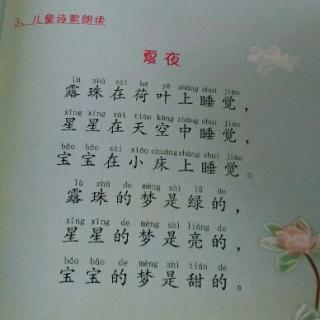 3、儿童诗歌朗读
夏夜
lù zhū zài hé yè shàng shuì jiào
露珠在荷叶上睡觉，
xīng xīng zài tiān kōng zhōng shuì jiào
星星在天空中睡觉，
bǎo bǎo zài xiǎo chuáng shàng shuì jiào
宝宝在小床上睡觉。
lù zhū de mèng shì lǜ de
露珠的梦是绿的，
xīng xīng de mèng shì liàng de
星星的梦是亮的，
bǎo bǎo de mèng shì tián de
宝宝的梦是甜的。